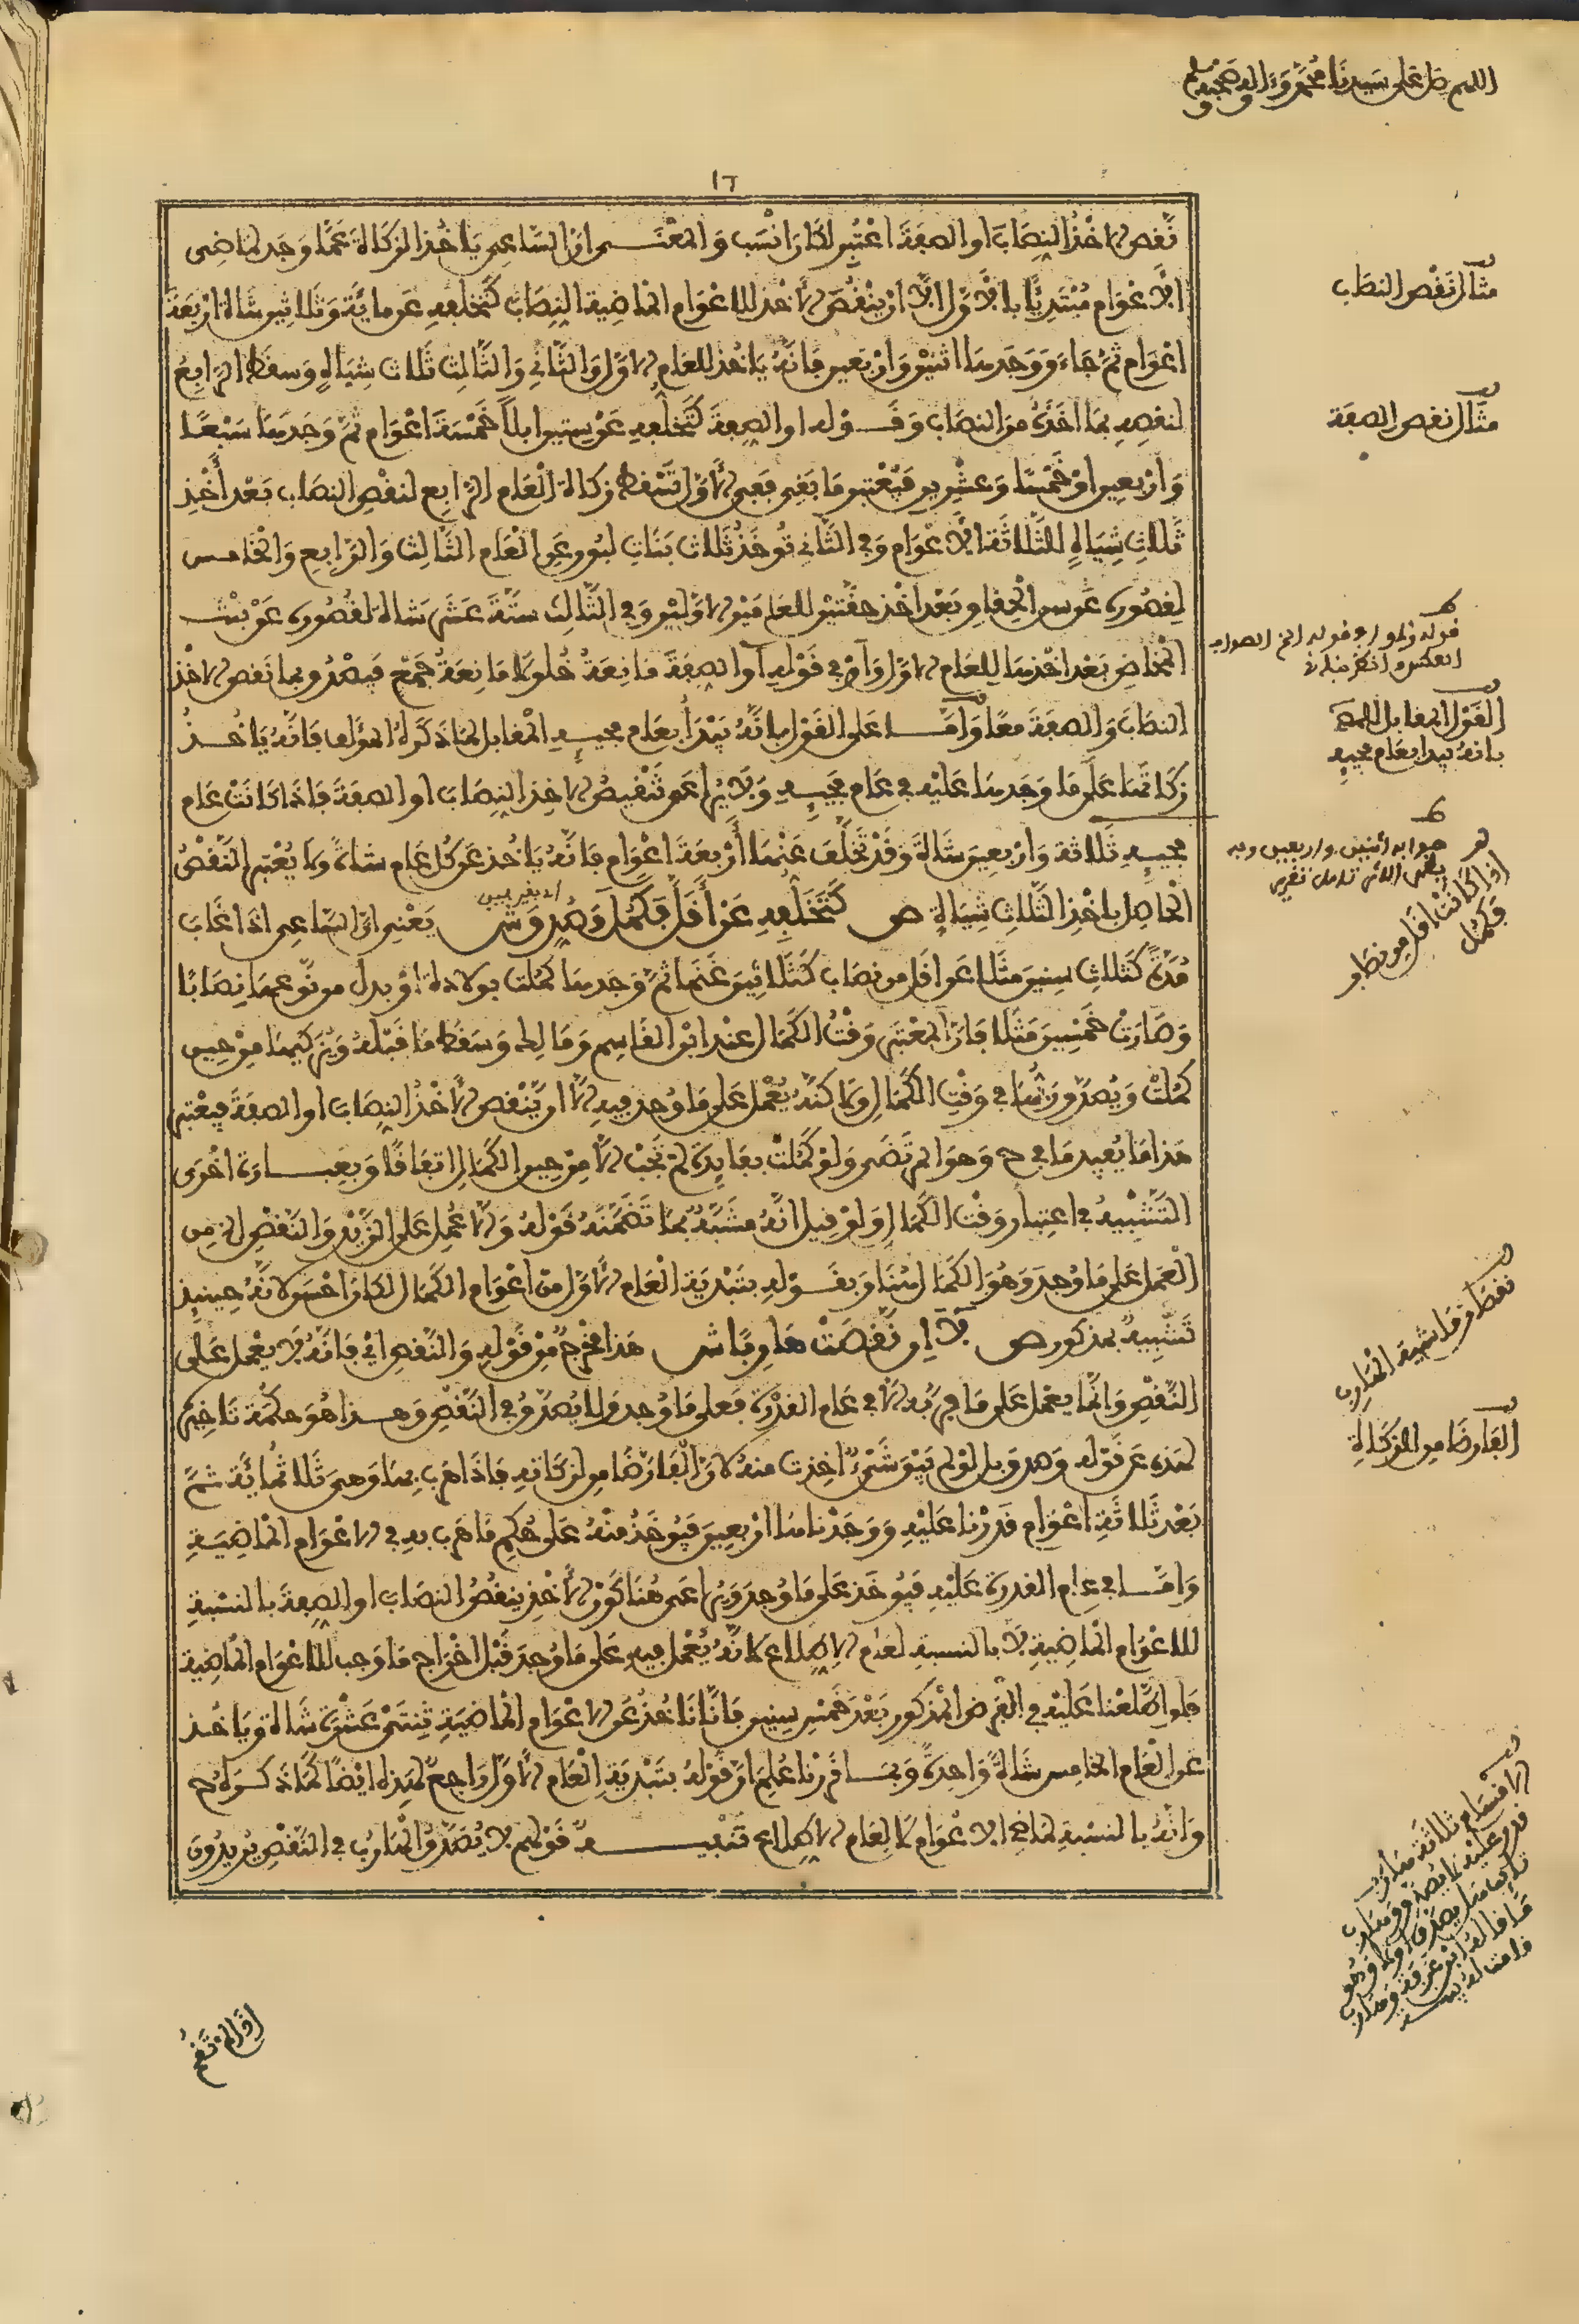 اللهم صل على سيدنا محمد وءاله وصحبه وسلم
١٦
نقص الاخذ النصاب او الصفة اعتبر لكان انسب والمعنـــى ان الساعي ياخذ الزكاة عما وجد لماضي
الاعوام مبتديا بالاول الا ان ينقص الاخذ للاعوام الماضية النصاب كتخلفه عن مائة وثلاثين شاة اربعة
اعوام ثم جاء ووجدها اثنين واربعين فانه ياخذ للعام الاول والثاني والثالث ثلاث شياه وسقط الرابع
لنقصه بما اخذه من النصاب وقـــوله او الصفة كتخلفه عن ستين ابلا خمسة اعوام ثم وجدها سبعا
واربعين او خمسا وعشرين فيعتبر ما بقي ففي الاول تسقط زكاة العام الرابع لنقص النصاب بعد أخذ
ثلاث شياه للثلاثة الاعوام وفي الثاني توخذ ثلاث بنات لبون عن العام الثالث والرابع والخامس
لقصوره عن سن الحقاق بعد اخذ حقتين للعامين الاولين وفي الثالث ستة عشر شاة لقصوره عن بنت
المخاض بعد اخذها للعام الاول وأو في قوله أو الصفة مانعة خلو لا مانعة جمع فيصدق بما نقص الاخذ
النصاب والصفة معا وأمـــا على القول بانه يبدأ بعام مجيـــه المقابل لما ذكره المؤلف فانه ياخـــذ
زكاتها على ما وجدها عليه في عام مجيـــه ولا يراعى تنقيص الاخذ النصاب او الصفة فاذا كانت عام
مجيـــه ثلاثة واربعين شاة وقد تخلف عنها أربعة اعوام فانه ياخذ عن كل عام شاة ولا يعتبر النقص
الحاصل باخذ الثلاث شياه ص كتخلفه عن أقل فكمل وصدق ش يعني ان الساعي اذا غاب
مدة كثلاث سنين مثلا عن اقل من نصاب كثلاثين غنما ثم وجدها كملت بولادة او بدل من نوعها نصابا
وصارت خمسين مثلا فان المعتبر وقت الكمال عند ابن القاسم ومالك وسقط ما قبله ويزكيها من حين
كملت ويصدق ربها في وقت الكمال ولاكنه يعمل على ما وجد فيه الا ان ينقص الاخذ النصاب او الصفة فيعتبر
هذا ما يفيد ما في ح وهو المرتضى ولو كملت بفايدة لم تجب الا من حين الكمال اتفاقا وبعبـــارة اخرى
التشبيه في اعتبار وقت الكمال ولو قيل انه مشبه بما تضمنه قوله والا عمل على الزيد والنقص الخ من
العمل على ما وجد وهو الكمال هنا وبقـــوله بتبدية العام الاول من اعوام الكمال لكان احسن لانه حينئذ
تشبيه بمذكور ص لا ان نقصت هاربا ش هذا مخرج من قوله والنقص اي فانه لا يعمل على
النقص وانما يعمل على ما فر به الا في عام القدرة فعلى ما وجد ولا يصدق في النقص وهـــذا هو حكمة تاخيره
لهذه عن قوله وصدق بل لو لم يبق شيء اخذت منه لان الفار ضامن لزكاته فاذا هرب بها وهي ثلاثمائة ثم
بعد ثلاثة اعوام قدرنا عليه ووجدناها اربعين فيوخذ منه على حكم ما هرب به في الاعوام الماضية
وامـــا في عام القدرة عليه فيوخذ على ما وجد ويراعى هنا كون الاخذ ينقص النصاب او الصفة بالنسبة
للاعوام الماضية لا بالنسبة لعام الاطلاع لانه يعمل فيه على ما وجد قبل اخراج ما وجب للاعوام الماضية
فلو اطلعنا عليه في الفرض المذكور بعد خمس سنين فانا ناخذ عن الاعوام الماضية ثنتي عشرة شاة وياخذ
عن العام الخامس شاة واحدة وبمـــا قررنا علم ان قوله بتبدية العام الاول راجع لهذه ايضا كما ذكـــره ح
وانه بالنسبة لماضي الاعوام لا لعام الاطلاع تنبيـــــه قولهم لا يصدق الهارب في النقص يريدون
اذا لم تقم
مثال نقص النصاب
مثال نقص الصفة
القول المقابل للمص
بانه يبدأ بعام مجيه
اذا كانت اقل من نصاب
فكمل
نقص ماشية الهارب
الفار ضامن للزكاة
الاقسام ثلاثة هارب
قدر عليه لا يصدق وهارب